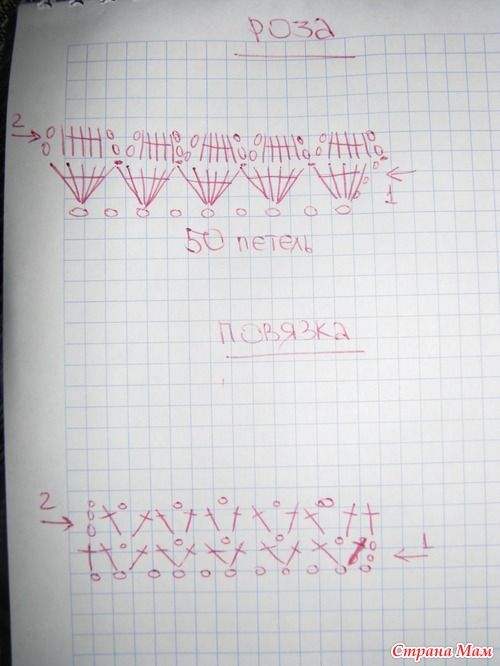 РОЗА
2
1
50 петель
ПОВЯЗКА
2
1
Страна Мам